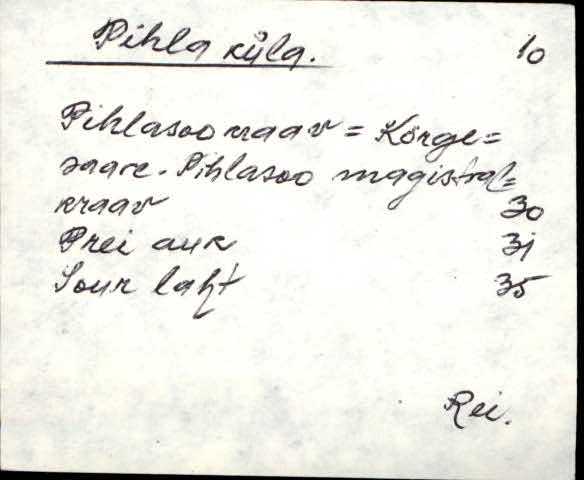 Pihla küla. 10
Pihlasoo kraav = Kõrge=
saare-Pihlasoo magistral=
kraav 30
Prei auk 31
Suur laht 35
Rei.